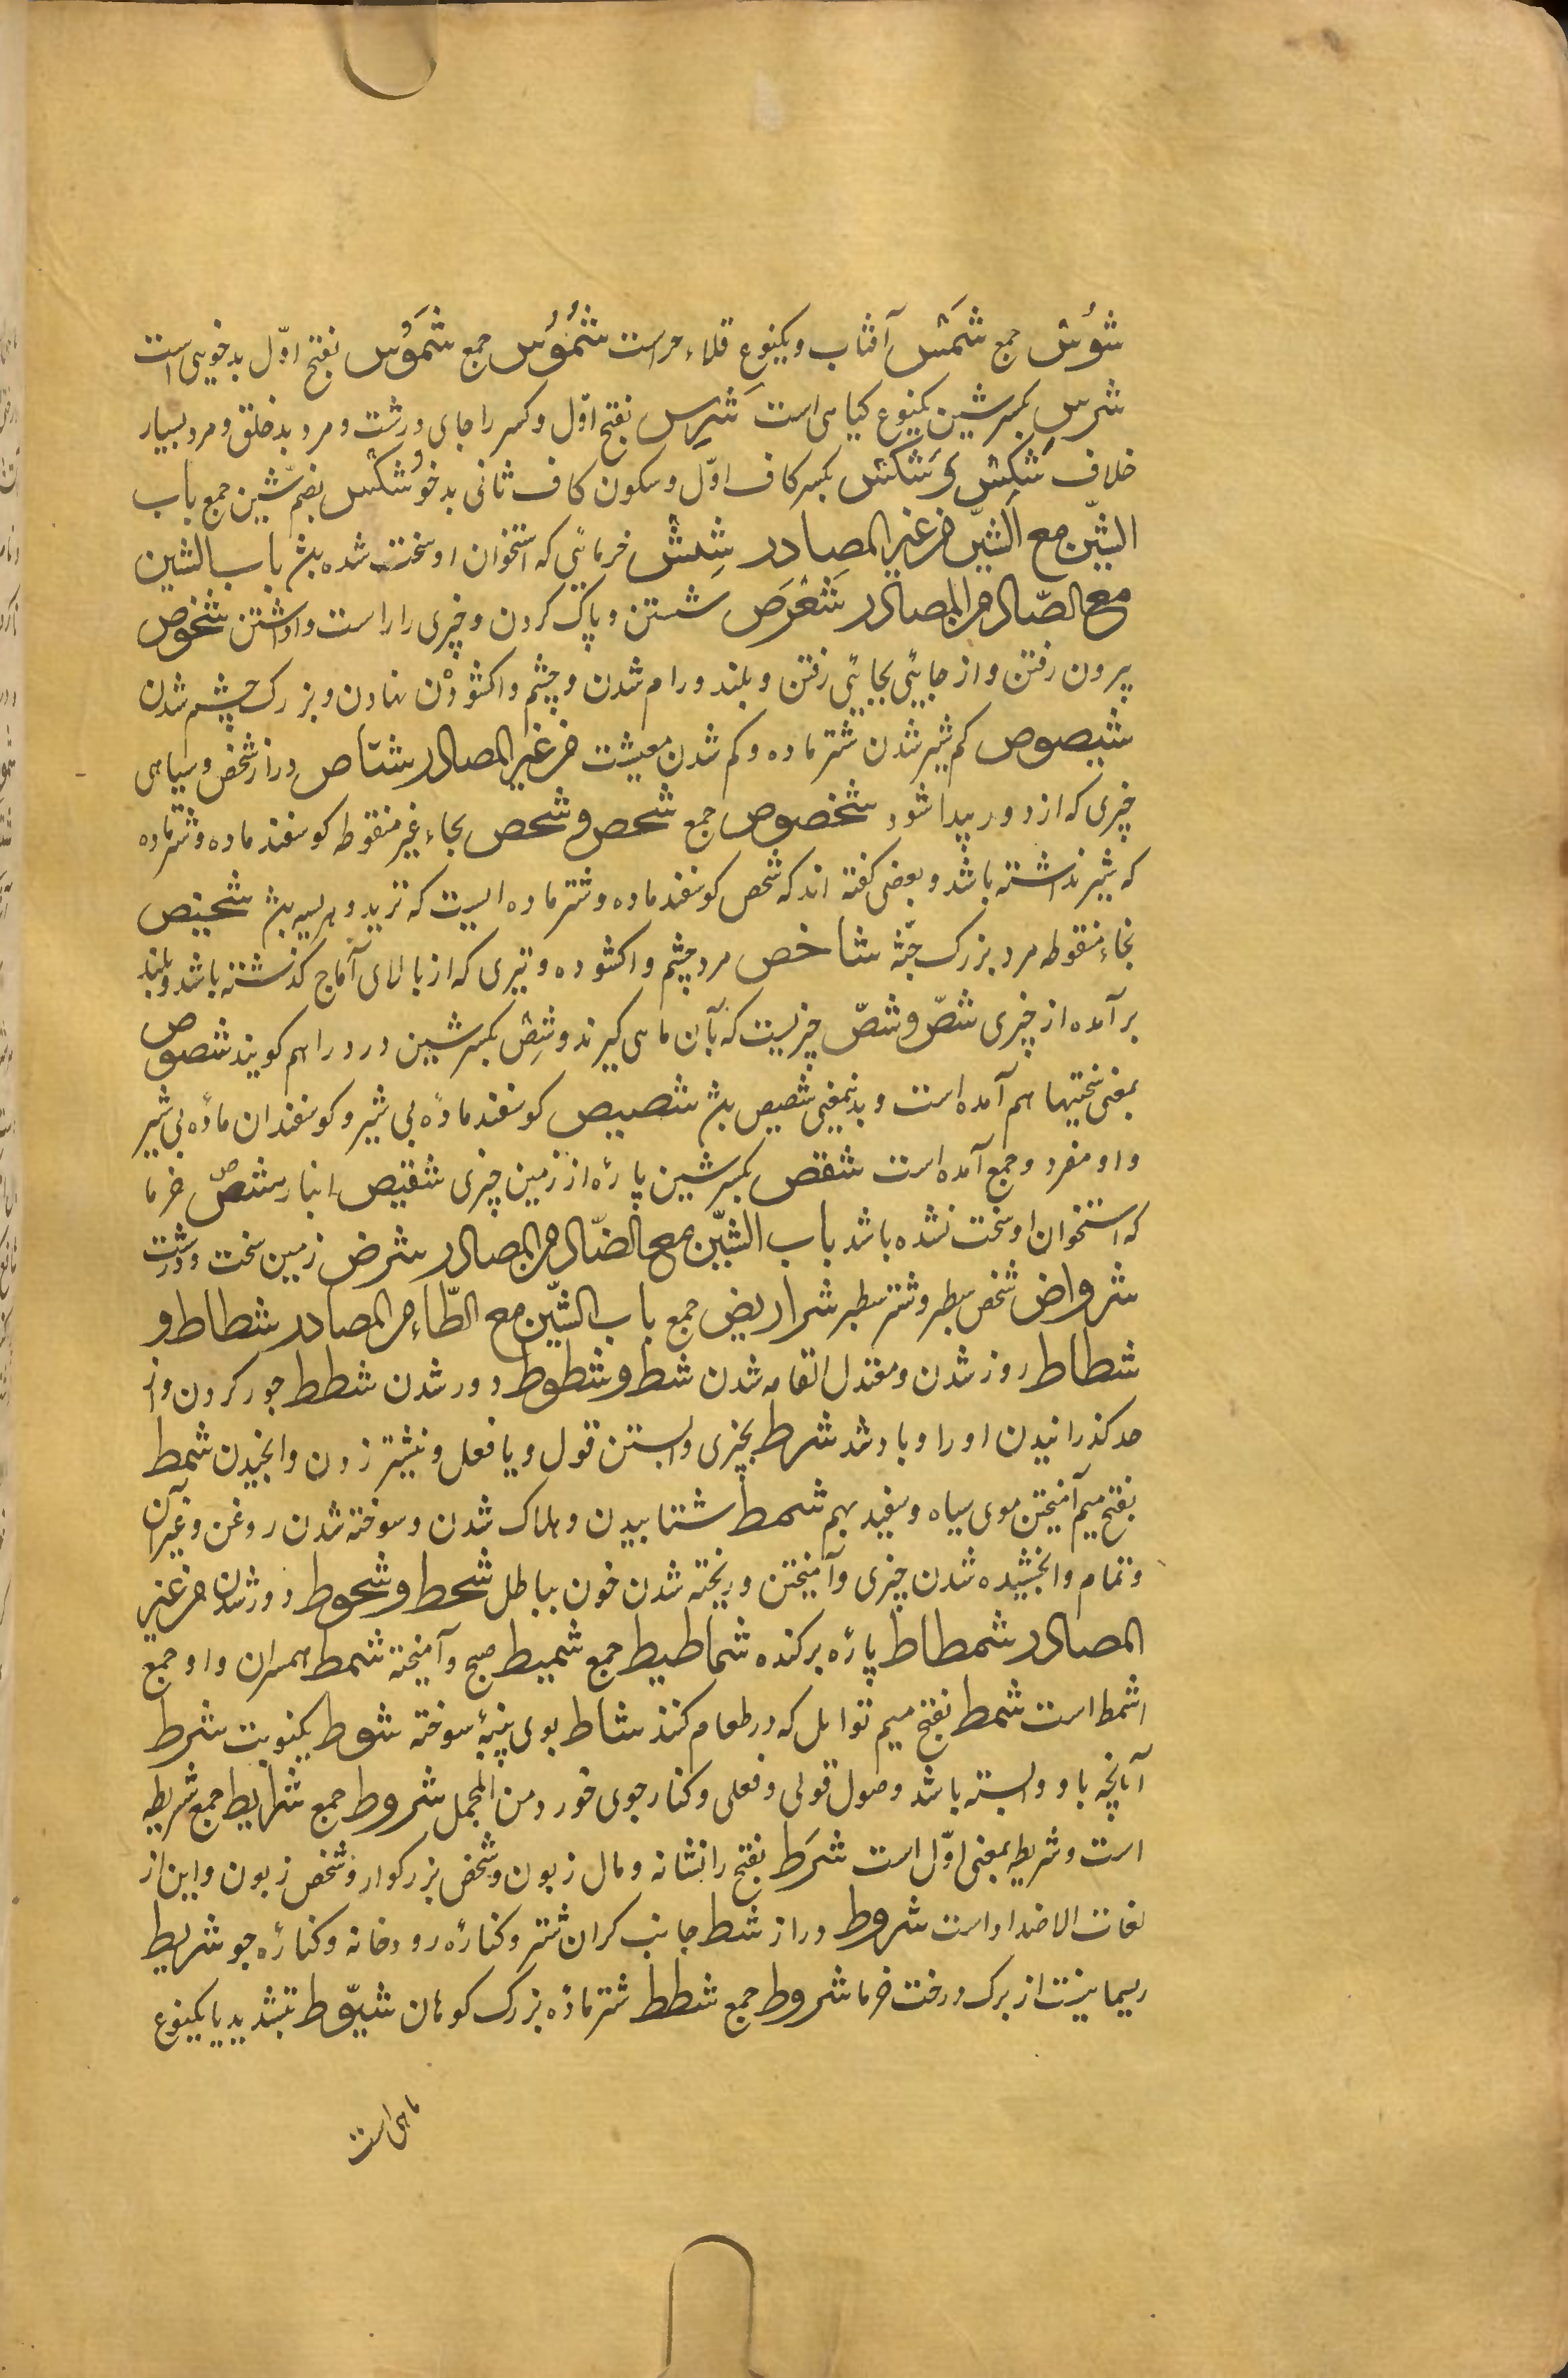 شؤس جمع شَمس آفتاب و یکنوع قلاءد است شُمُوس جمع شَمُوس بفتح اوّل بدخویی است
شرس بکسر شین یکنوع کیاهی است شَرِس بفتح اوّل و کسر را جای درشت و مرد بدخلق و مرد بسیار
خلاف شَکِس و شَکس بکسر کاف اوّل و سکون کاف ثانی بدخو شُکس بضم شین جمع باب
الشّین مع الشّین من غیر المصادر شِیش خرمائی که استخوان او سخت شده بش باب الشین
مع الصّاد من المصادر شَوْص شستن و پاک کردن و چیزی را راست واداشتن شخوص
بیرون رفتن و از جایی بجایی رفتن و بلند و رام شدن و چشم واکشودن نهادن و بزرک چشم شدن
شصوص کم شیر شدن شتر ماده و کم شدن معیشت من غیر المصادر شناص دراز شخص و سیاهی
چیزی که از دور پیدا شود شخصوص جمع شحص و شحص بحاء غیر منقوطه کوسفند ماده و شتر ماده
که شیر نداشته باشد و بعضی کفته اند که شحص کوسفند ماده و شتر ماده ایست که نزید و هرسیه بش شخیص
بخاء منقوطه مرد بزرک جثّه شاخص مرد چشم واکشوده و تیری که از بالای آماج کذشته باشد و بلند
برآمده از چیزی شصّ و شصّ چیزیست که بآن ماهی کیرند و شِص بکسر شین درد را هم کویند شصوص
بمعنی سختیها هم آمده است و بدینمعنی شصیص بش شصیص کوسفند ماده بی شیر و کوسفندان ماده بی شیر
و او مفرد و جمع آمده است شقص بکسر شین پاره از زمین چیزی شقیص انباز شصّ خرما
که استخوان او سخت نشده باشد باب الشّین مع الضّاد من المصادر شرض زمین سخت و درشت
شرواض شخص سطبر و شتر سطبر شراریض جمع باب الشّین مع الطّاء من المصادر شطاط و
شطاط روز شدن و معتدل القامه شدن شط و شطوط دور شدن شطط جور کردن و از
حد کذرانیدن او را و با و شد شرط بچیزی وابستن قول و یا فعل و نیشتر زدن وانجیدن شمط
بفتح میم آمیختن موی سیاه و سفید بهم شمط شتابیدن و هلاک شدن و سوخته شدن روغن و غیر آن
و تمام وانجشیده شدن چیزی و آمیختن و ریخته شدن خون بباطل شحط و شحوط دور شدن من غیر
المصادر شمطاط پاره پرکنده شماطیط جمع شمیط صبح و آمیخته شمط همسران و او جمع
اشمط است شمط بفتح میم توابل که در طعام کنند شاط بوی پنبهٔ سوخته شوط یکنوبت شرط
آنچه باو وابسته باشد وصول قولی و فعلی و کنار جوی خورد من المجمل شروط جمع شرایط جمع شریطه
است و شریطه بمعنی اوّل است شَرَط بفتح را نشانه و مال زبون و شخص بزرکوار و شخص زبون و این از
لغات الاضداد است شروط دراز شط جانب کران شتر و کناره رودخانه و کناره جو شریط
ریسمانیست از برک درخت خرما شروط جمع شطط شتر ماده بزرک کوهان شیّوط بتشدید یا یکنوع
ماهی است